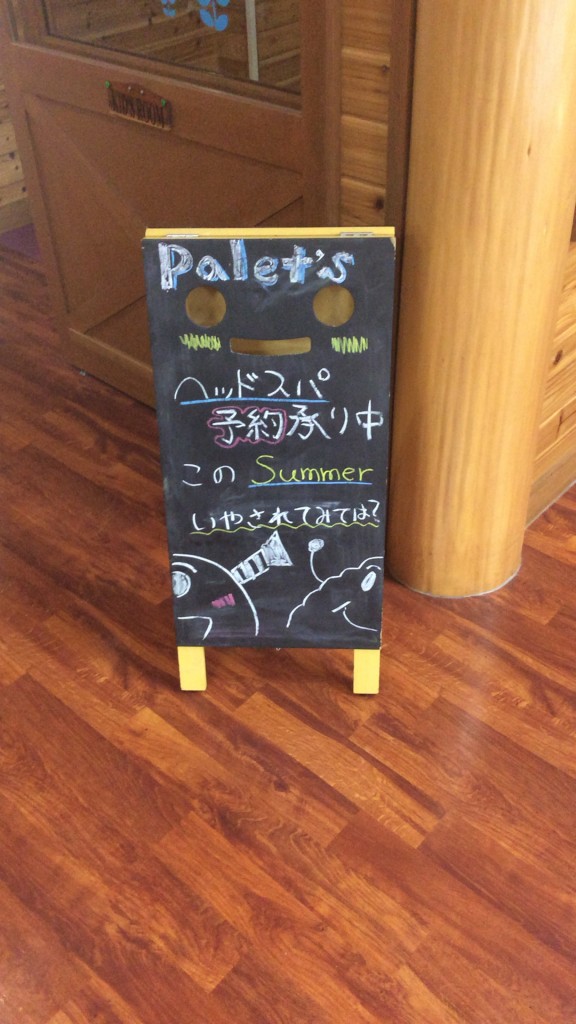 KID'S ROOM
Palet's
ヘッドスパ
予約承り中
この Summer
いやされてみては?